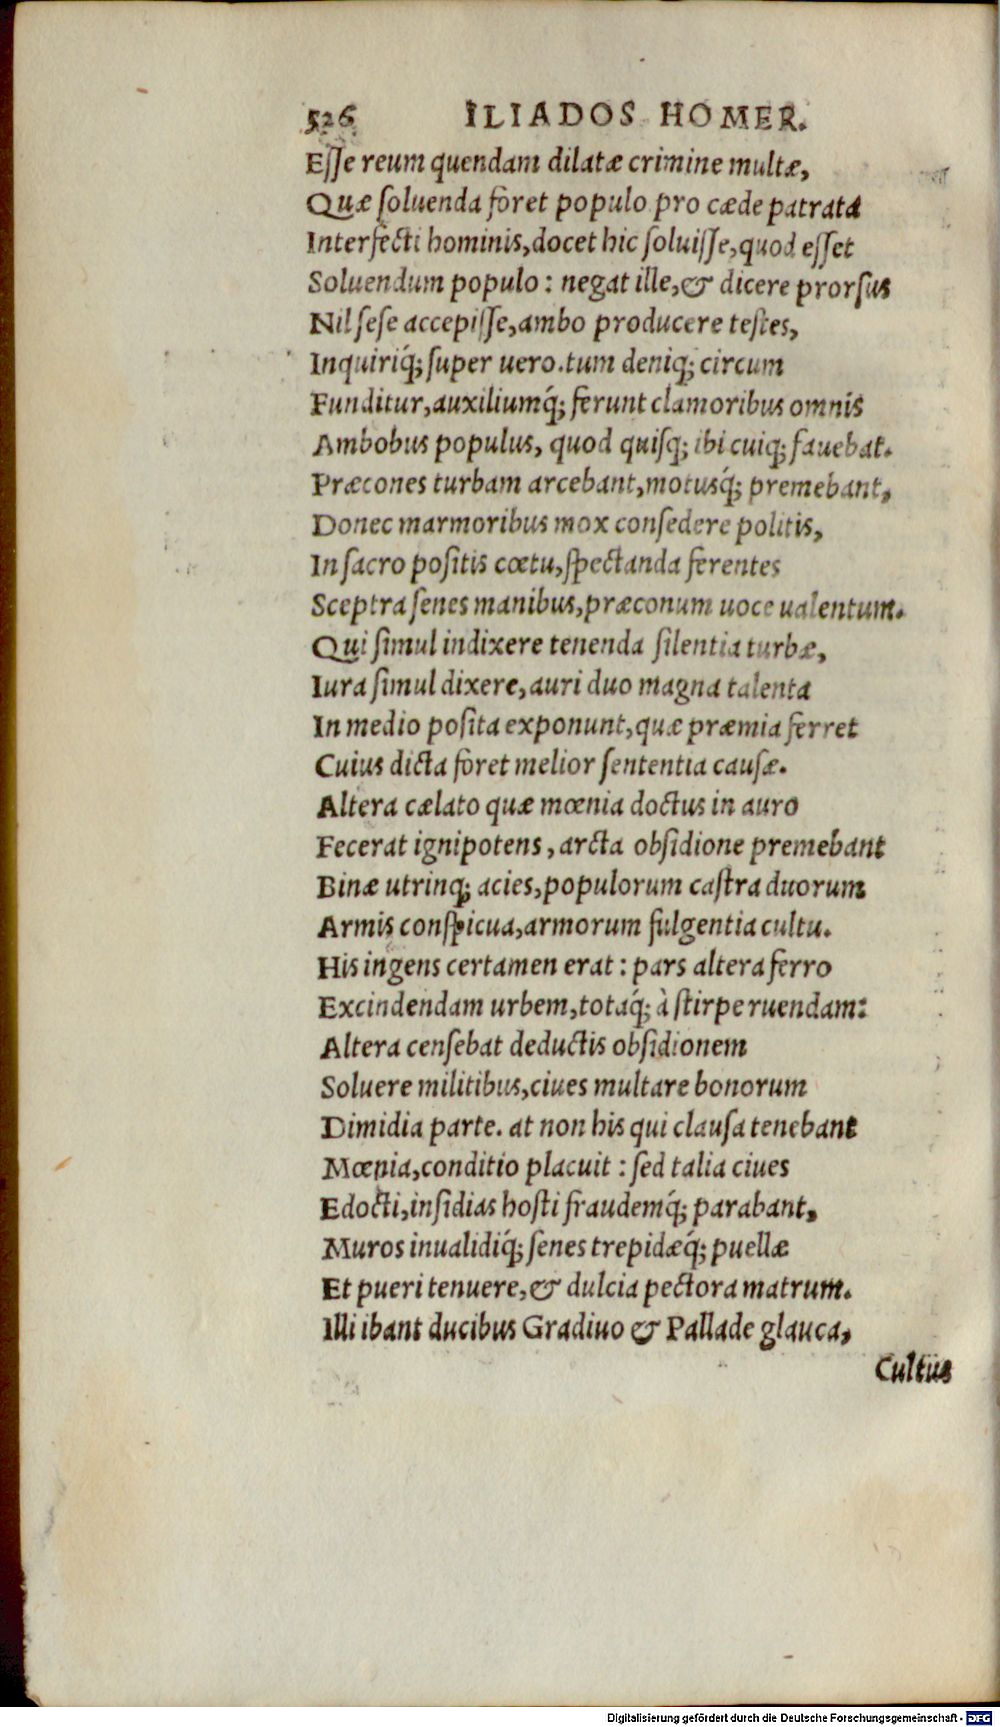 526 ILIADOS HOMER.
Eſſe reum quendam dilatæ crimine multæ,
Quæ ſoluenda foret populo pro cæde patrata
Interfecti hominis, docet hic ſoluiſſe, quod eſſet
Soluendum populo: negat ille, & dicere prorſus
Nil ſeſe accepiſſe, ambo producere teſtes,
Inquiriq́; ſuper uero. tum deniq; circum
Funditur, auxiliumq́; ferunt clamoribus omnis
Ambobus populus, quod quiſq; ibi cuiq; fauebat.
Præcones turbam arcebant, motusq́; premebant,
Donec marmoribus mox conſedere politis,
In ſacro poſitis cœtu, ſpectanda ferentes
Sceptra ſenes manibus, præconum uoce ualentum.
Qui ſimul indixere tenenda ſilentia turbæ,
Iura ſimul dixere, auri duo magna talenta
In medio poſita exponunt, quæ præmia ferret
Cuius dicta foret melior ſententia cauſæ.
Altera cælato quæ mœnia doctus in auro
Fecerat ignipotens, arcta obſidione premebant
Binæ utrinq; acies, populorum caſtra duorum
Armis conſpicua, armorum fulgentia cultu.
His ingens certamen erat: pars altera ferro
Excindendam urbem, totaq́; à ſtirpe ruendam:
Altera cenſebat deductis obſidionem
Soluere militibus, ciues multare bonorum
Dimidia parte. at non his qui clauſa tenebant
Mœnia, conditio placuit: ſed talia ciues
Edocti, inſidias hoſti fraudemq́; parabant,
Muros inualidiq́; ſenes trepidæq́; puellæ
Et pueri tenuere, & dulcia pectora matrum.
Illi ibant ducibus Gradiuo & Pallade glauca,
Cultus
Digitalisierung gefördert durch die Deutsche Forschungsgemeinschaft - DFG